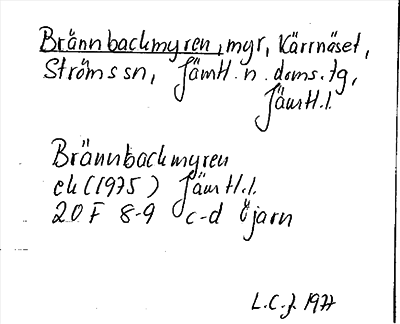 Brännbackmyren, myr, Kärrnäset,
Ströms sn, Jämtl. n. doms. tg,
Jämtl. l.
Brännbackmyren
ek (1975) Jämtl. l.
20 F 8-9 c-d Tjarn
L.C.J. 1977